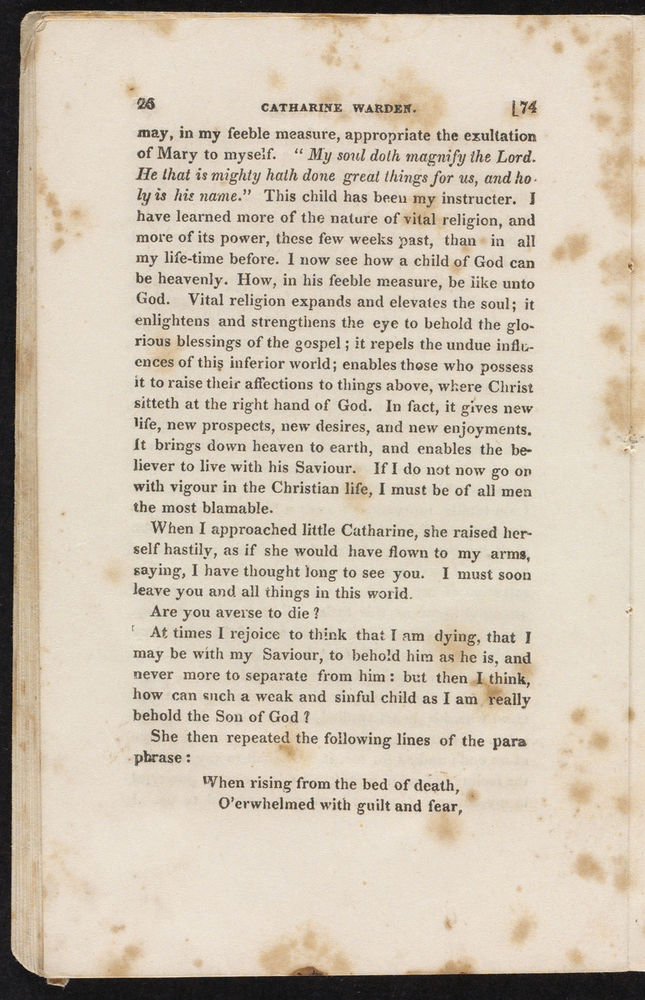 26 CATHARINE WARDEN. [74
may, in my feeble measure, appropriate the exultation
of Mary to myself. "My soul doth magnify the Lord.
He that is mighty hath done great things for us, and ho-
ly is his name." This child has been my instructer. I
have learned more of the nature of vital religion, and
more of its power, these few weeks past, than in all
my life-time before. I now see how a child of God can
be heavenly. How, in his feeble measure, be like unto
God. Vital religion expands and elevates the soul; it
enlightens and strengthens the eye to behold the glo-
rious blessings of the gospel; it repels the undue influ-
ences of this inferior world; enables those who possess
it to raise their affections to things above, where Christ
sitteth at the right hand of God. In fact, it gives new
life, new prospects, new desires, and new enjoyments.
It brings down heaven to earth, and enables the be-
liever to live with his Saviour. If I do not now go on
with vigour in the Christian life, I must be of all men
the most blamable.
When I approached little Catharine, she raised her-
self hastily, as if she would have flown to my arms,
saying, I have thought long to see you. I must soon
leave you and all things in this world.
Are you averse to die?
At times I rejoice to think that I am dying, that I
may be with my Saviour, to behold him as he is, and
never more to separate from him: but then I think,
how can such a weak and sinful child as I am really
behold the Son of God?
She then repeated the following lines of the para
phrase:
When rising from the bed of death,
O'erwhelmed with guilt and fear,